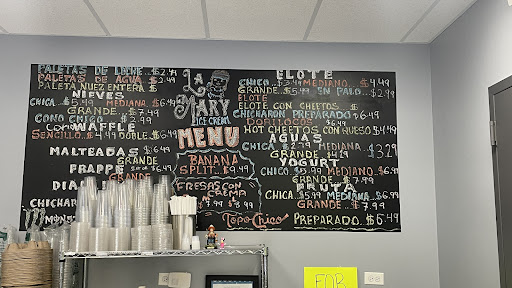 PALETAS DE LECHE..$2.49
PALETAS DE AGUA..$2.49
PALETA NUEZ ENTERA $
NIEVES
CHICA...$5.49 MEDIANA $6.49
GRANDE...$7.49
CONO CHICO $2.99
Cono WAFFLE
SENCILLO.$4.49 DOBLE.$6.49
MALTEADAS
GRANDE
FRAPPE
GRANDE
CHICHAR
LA
MARY
ICE CREAM
MENU
BANANA
SPLIT..$9.49
FRESAS CON
CREMA
$8.99
Topo Chico
ELOTE
CHICO..$3.49 MEDIANO..$4.49
GRANDE..$5.49 EN PALO..$2.99
ELOTE
ELOTE CON CHEETOS
CHICHARON PREPARADO
DORILOCOS $6.49
HOT CHEETOS CON QUESO $4.49
AGUAS
CHICA $2.79 MEDIANA $3.29
GRANDE $4.29
YOGURT
CHICO..$5.99 MEDIANO..$6.99
GRANDE...$7.99
FRUTA
CHICA..$5.99 MEDIANA..$6.99
GRANDE...$7.99
PREPARADO..$6.49
FOR